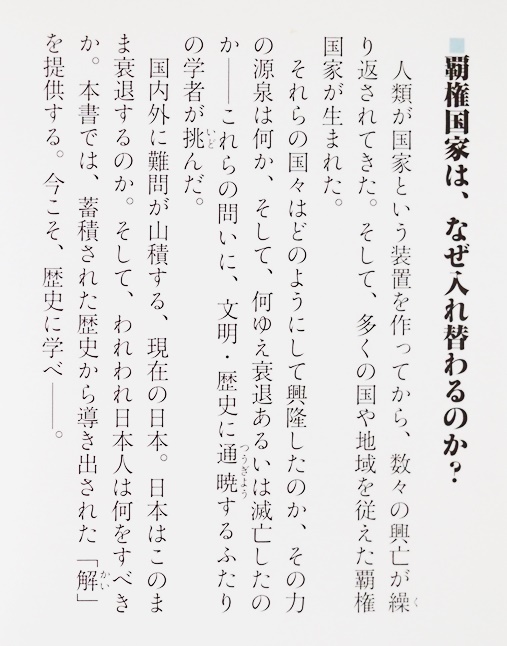 ■覇権国家は、なぜ入れ替わるのか？
人類が国家という装置を作ってから、数々の興亡が繰
り返されてきた。そして、多くの国や地域を従えた覇権
国家が生まれた。
それらの国々はどのようにして興隆したのか、その力
の源泉は何か、そして、何ゆえ衰退あるいは滅亡したの
か――これらの問いに、文明・歴史に通暁するふたり
の学者が挑んだ。
国内外に難問が山積する、現在の日本。日本はこのま
ま衰退するのか。そして、われわれ日本人は何をすべき
か。本書では、蓄積された歴史から導き出された「解」
を提供する。今こそ、歴史に学べ――。